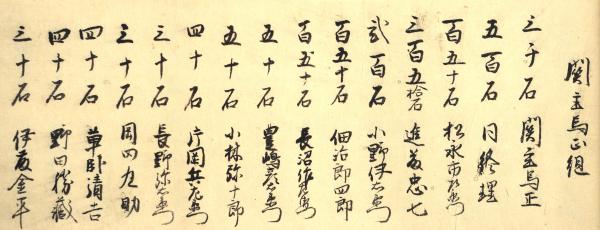 関主馬正組
三千石 関主馬正
五百石 同修理
百五十石 松永市左衛門
三百五拾石 進藤忠七
弐百石 小野伊右衛門
百五十石 佃治郎四郎
百五十石 長沼作左衛門
五十石 豊嶋左衛門
五十石 小林弥十郎
四十石 片岡兵左衛門
三十石 長野弥右衛門
三十石 岡四九助
四十石 草卧清吉
四十石 野田勝蔵
三十石 伊藤金平